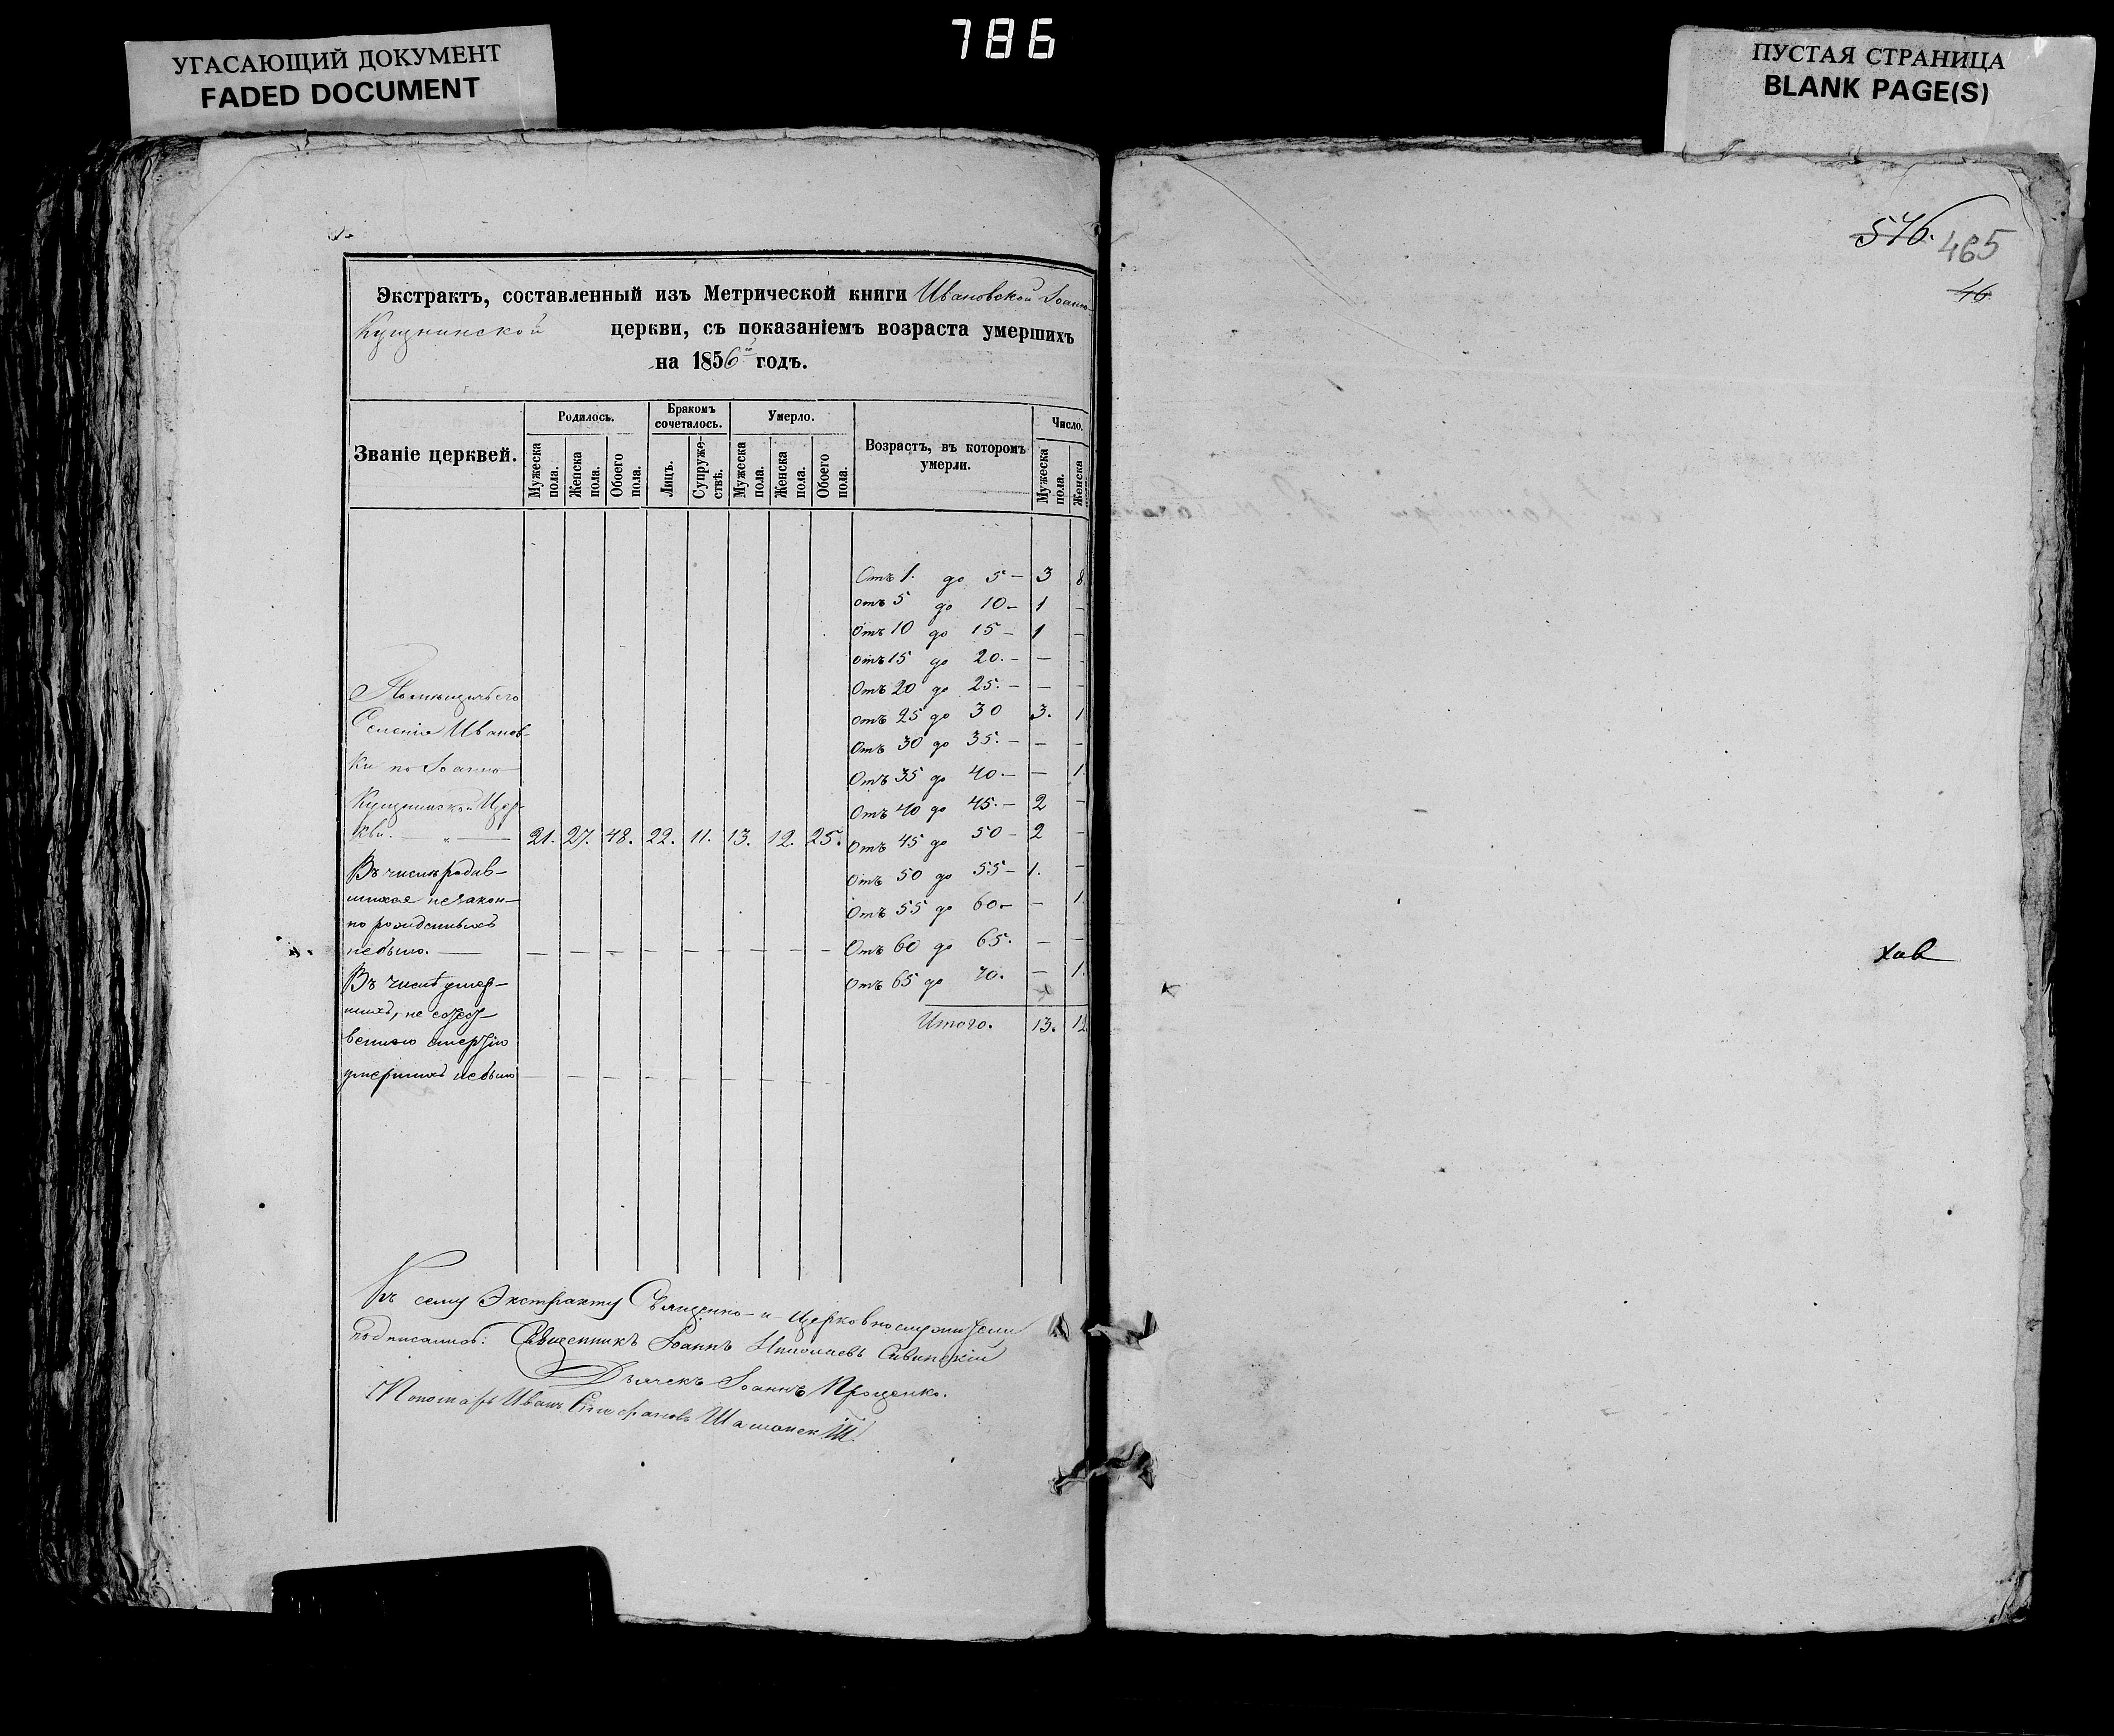 786
УГАСАЮЩИЙ ДОКУМЕНТ
FADED DOCUMENT
ПУСТАЯ СТРАНИЦА
BLANK PAGE(S)
Экстрактъ, составленный изъ Метрической книги Ивановской Іоанно-
Кущнинской церкви, съ показаніемъ возраста умершихъ
на 1856й годъ.
Званіе церквей.
Родилось.
Бракомъ сочеталось.
Умерло.
Возрастъ, въ которомъ умерли.
Число.
Мужеска пола.
Женска пола.
Обоего пола.
Лицъ.
Супружествъ.
Мужеска пола.
Женска пола.
Обоего пола.
Мужеска пола.
Женска
Отъ 1. до 5 — 3 8.
отъ 5 до 10 — 1 —
Отъ 10 до 15 — 1 —
отъ 15 до 20. — — —
Отъ 20 до 25. — — —
отъ 25 до 30 3. 1
Отъ 30 до 35. — — —
Отъ 35 до 40. — — 1.
Отъ 40 до 45. — 2 —
Отъ 45 до 50 — 2 —
Отъ 50 до 55 — 1. —
Отъ 55 до 60 — — 1.
Отъ 60 до 65. — —
Отъ 65 до 70. — 1.
Итого. 13. 12
Селенія Иванов-
ки по Іоанно-
Кущнинской Цер-
кви. — 21. 27. 48. 22. 11. 13. 12. 25.
Въ числѣ родив-
шихся незакон-
но рожденныхъ
небыло. — — — — — — — — —
Въ числѣ умер-
шихъ, не естест-
венною смертію
умершихъ небыло — — — — — — — —
Къ сему Экстракту Священно- и Церковнослужители
подписались: Священникъ Іоаннъ Николаевъ Савинскій
Дьячекъ Іоаннъ Проценко.
Пономарь Иванъ Стефановъ
546.
465
46